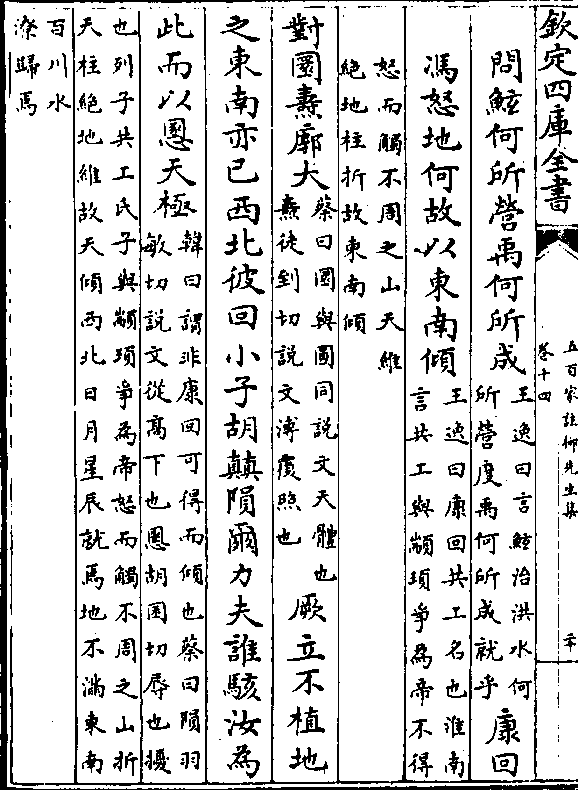 欽定四庫全書
五百家註柳先生集
卷十四
二十
問鯀何所營禹何所成王逸曰言鯀治洪水何
所營度禹何所成就乎康回
馮怒地何故以東南傾王逸曰康回共工名也淮南
言共工與顓頊爭為帝不得
怒而觸不周之山天維
絕地柱折故東南傾
對圜燾廓大蔡曰圜與圓同說文天體也
燾徒到切說文溥覆照也厥立不植地
之東南亦已西北彼回小子胡顛隕爾力夫誰駭汝為
此而以慁天極韓曰謂非康回可得而傾也蔡曰隕羽
敏切說文從高下也慁胡困切辱也擾
也列子共工氏子與顓頊爭為帝怒而觸不周之山折
天柱絕地維故天傾西北日月星辰就焉地不滿東南
百川水
潦歸焉